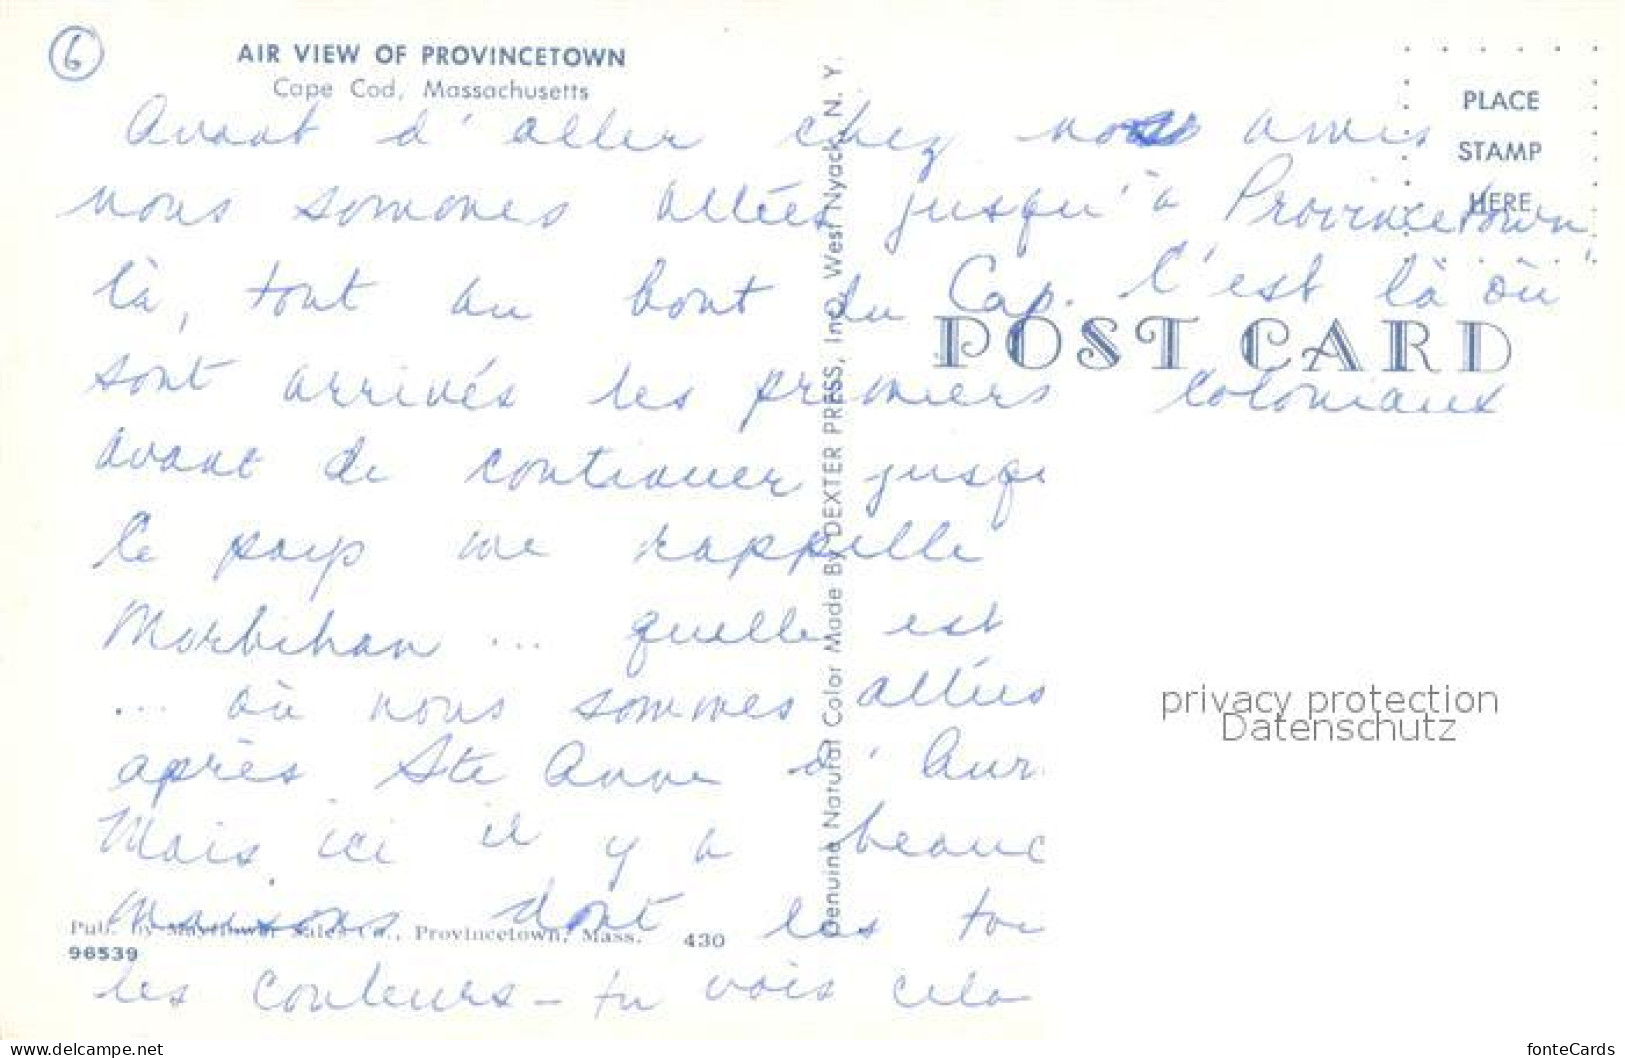 6
AIR VIEW OF PROVINCETOWN
Cape Cod, Massachusetts
PLACE
STAMP
HERE
Avant d'aller chez nos amis
nous sommes allées jusqu'à Provincetown,
là, tout au bout du Cap. C'est là où
POST CARD
sont arrivés les premiers coloniaux
avant de continuer jusqu
le pays me rappelle
Morbihan ... quelle est
... où nous sommes allées
après Ste Anne d'Aur
Mais ici il y a beauc
maisons dont les
les couleurs - tu vois cela
Genuine Natural Color Made By DEXTER PRESS, Inc., West Nyack, N. Y.
Pub. by Mayflower Sales Co., Provincetown, Mass. 430
96539
privacy protection
Datenschutz
www.delcampe.net
fonteCards